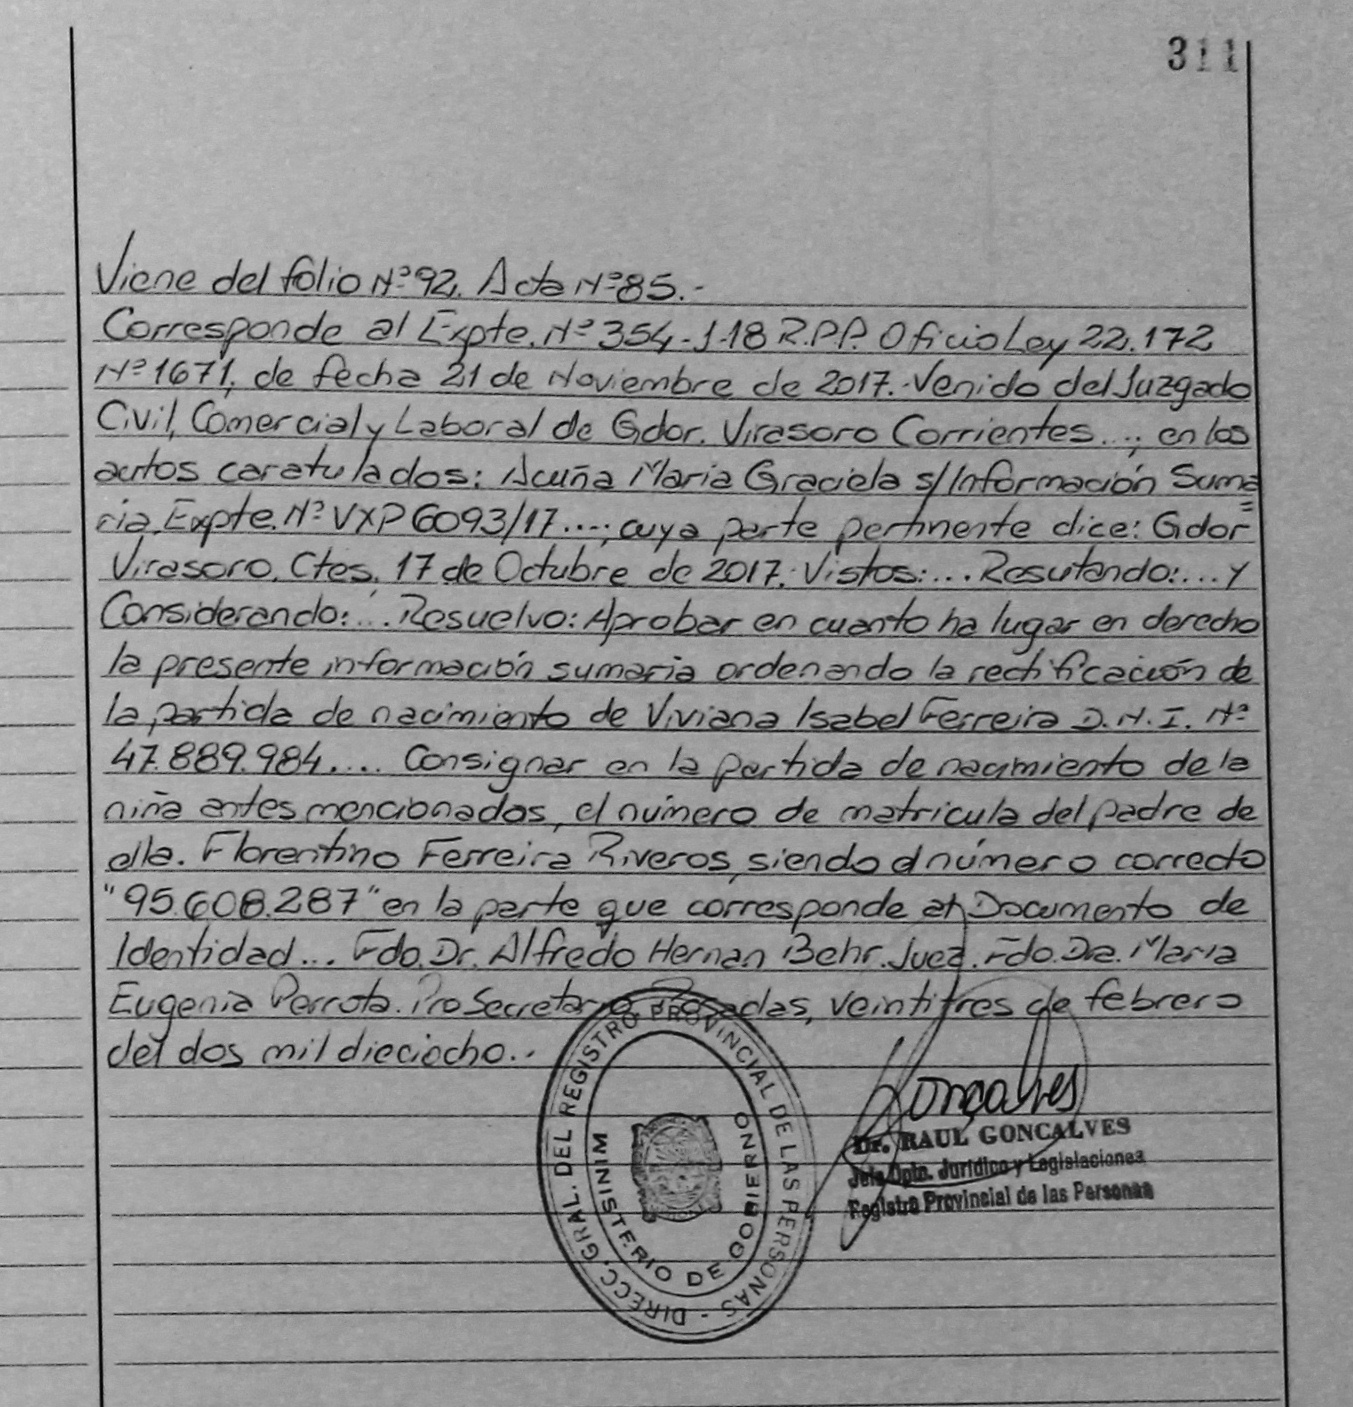 311
Viene del folio Nº 92. Acta Nº 85.-
Corresponde al Expte. Nº 354-J-18 R.P.P. Oficio Ley 22.172
Nº 1671, de fecha 21 de Noviembre de 2017.- Venido del Juzgado
Civil, Comercial y Laboral de Gdor. Virasoro Corrientes...; en los
autos caratulados: Acuña Maria Graciela s/Información Suma=
ria, Expte. Nº VXP 6093/17....; cuya parte pertinente dice: Gdor
Virasoro, Ctes, 17 de Octubre de 2017.- Vistos:... Resutando:... y
Considerando:... Resuelvo: Aprobar en cuanto ha lugar en derecho
la presente información sumaria ordenando la rectificación de
la partida de nacimiento de Viviana Isabel Ferreira D.N.I. Nº
47.889.984.... Consignar en la partida de nacimiento de la
niña antes mencionados, el número de matricula del padre de
ella. Florentino Ferreira Riveros, siendo el número correcto
"95.608.287" en la parte que corresponde al Documento de
Identidad... Fdo. Dr. Alfredo Hernan Behr. Juez. Fdo. Dra. Maria
Eugenia Perrota. Pro Secretaria. Posadas, veintitres de febrero
del dos mil dieciocho..
DIRECC. GRAL. DEL REGISTRO PROVINCIAL DE LAS PERSONAS -
MINISTERIO DE GOBIERNO
Goncalves
Dr. RAUL GONCALVES
Jefe Dpto. Jurídico y Legislaciones
Registro Provincial de las Personas